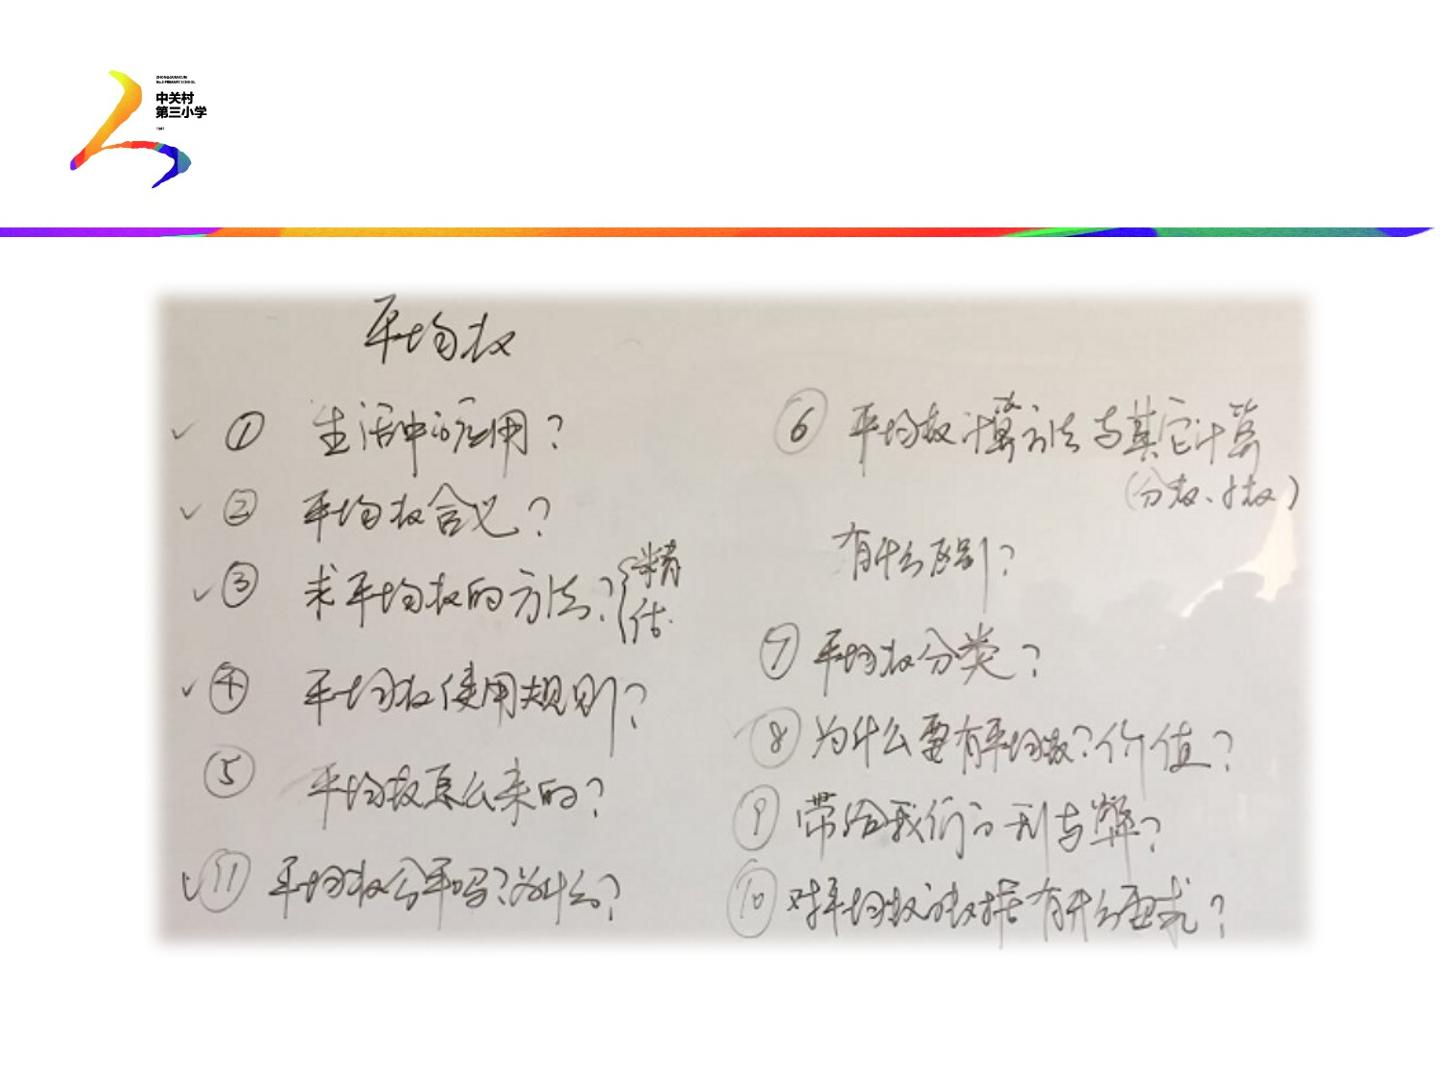 ZHONGGUANCUN
No.3 PRIMARY SCHOOL
中关村
第三小学
1981
平均数
✓ ① 生活中的应用?
✓ ② 平均数含义?
✓ ③ 求平均数的方法? { 精 估.
✓ ④ 平均数使用规则?
⑤ 平均数怎么来的?
✓ ⑪ 平均数公平吗?为什么?
⑥ 平均数计算方法与其它计算
(分数、小数)
有什么区别?
⑦ 平均数分类?
⑧ 为什么要有平均数?价值?
⑨ 带给我们的利与弊?
⑩ 对平均数的数据有什么要求?